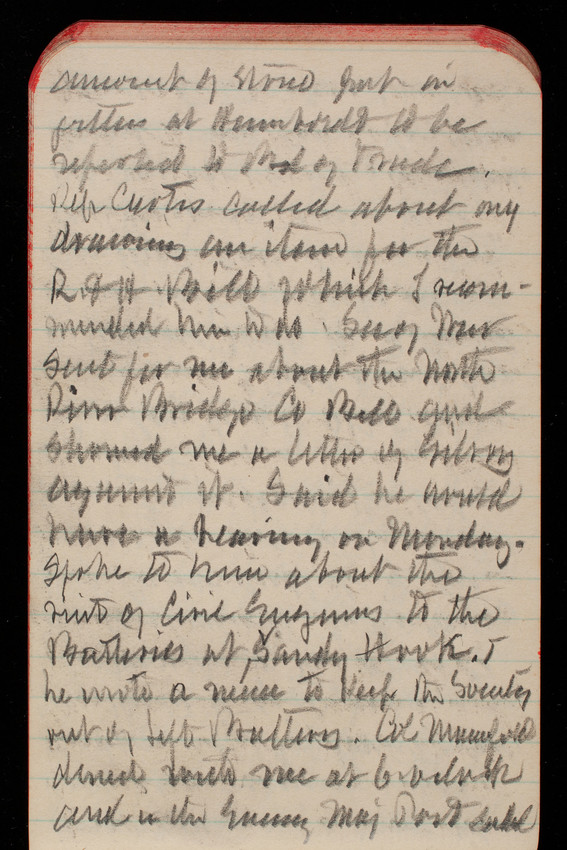 amount of stone put in
jetties at Humboldt to be
referred to Bd of Trade.
Rep Curtis called about my
drawing an item for the
R & H Bill which I recom-
mended him to do. Secy War
sent for me about the North
River Bridge Co Bill and
showed me a letter of Gilroy
against it. Said he would
have a hearing on Monday.
Spoke to him about the
visit of Civil Engineers to the
Batteries at Sandy Hook. &
he wrote a memo to keep the Society
out of left Battery. Col Mumford
dined with me at 6 oclock
and in the Evening Maj Post called